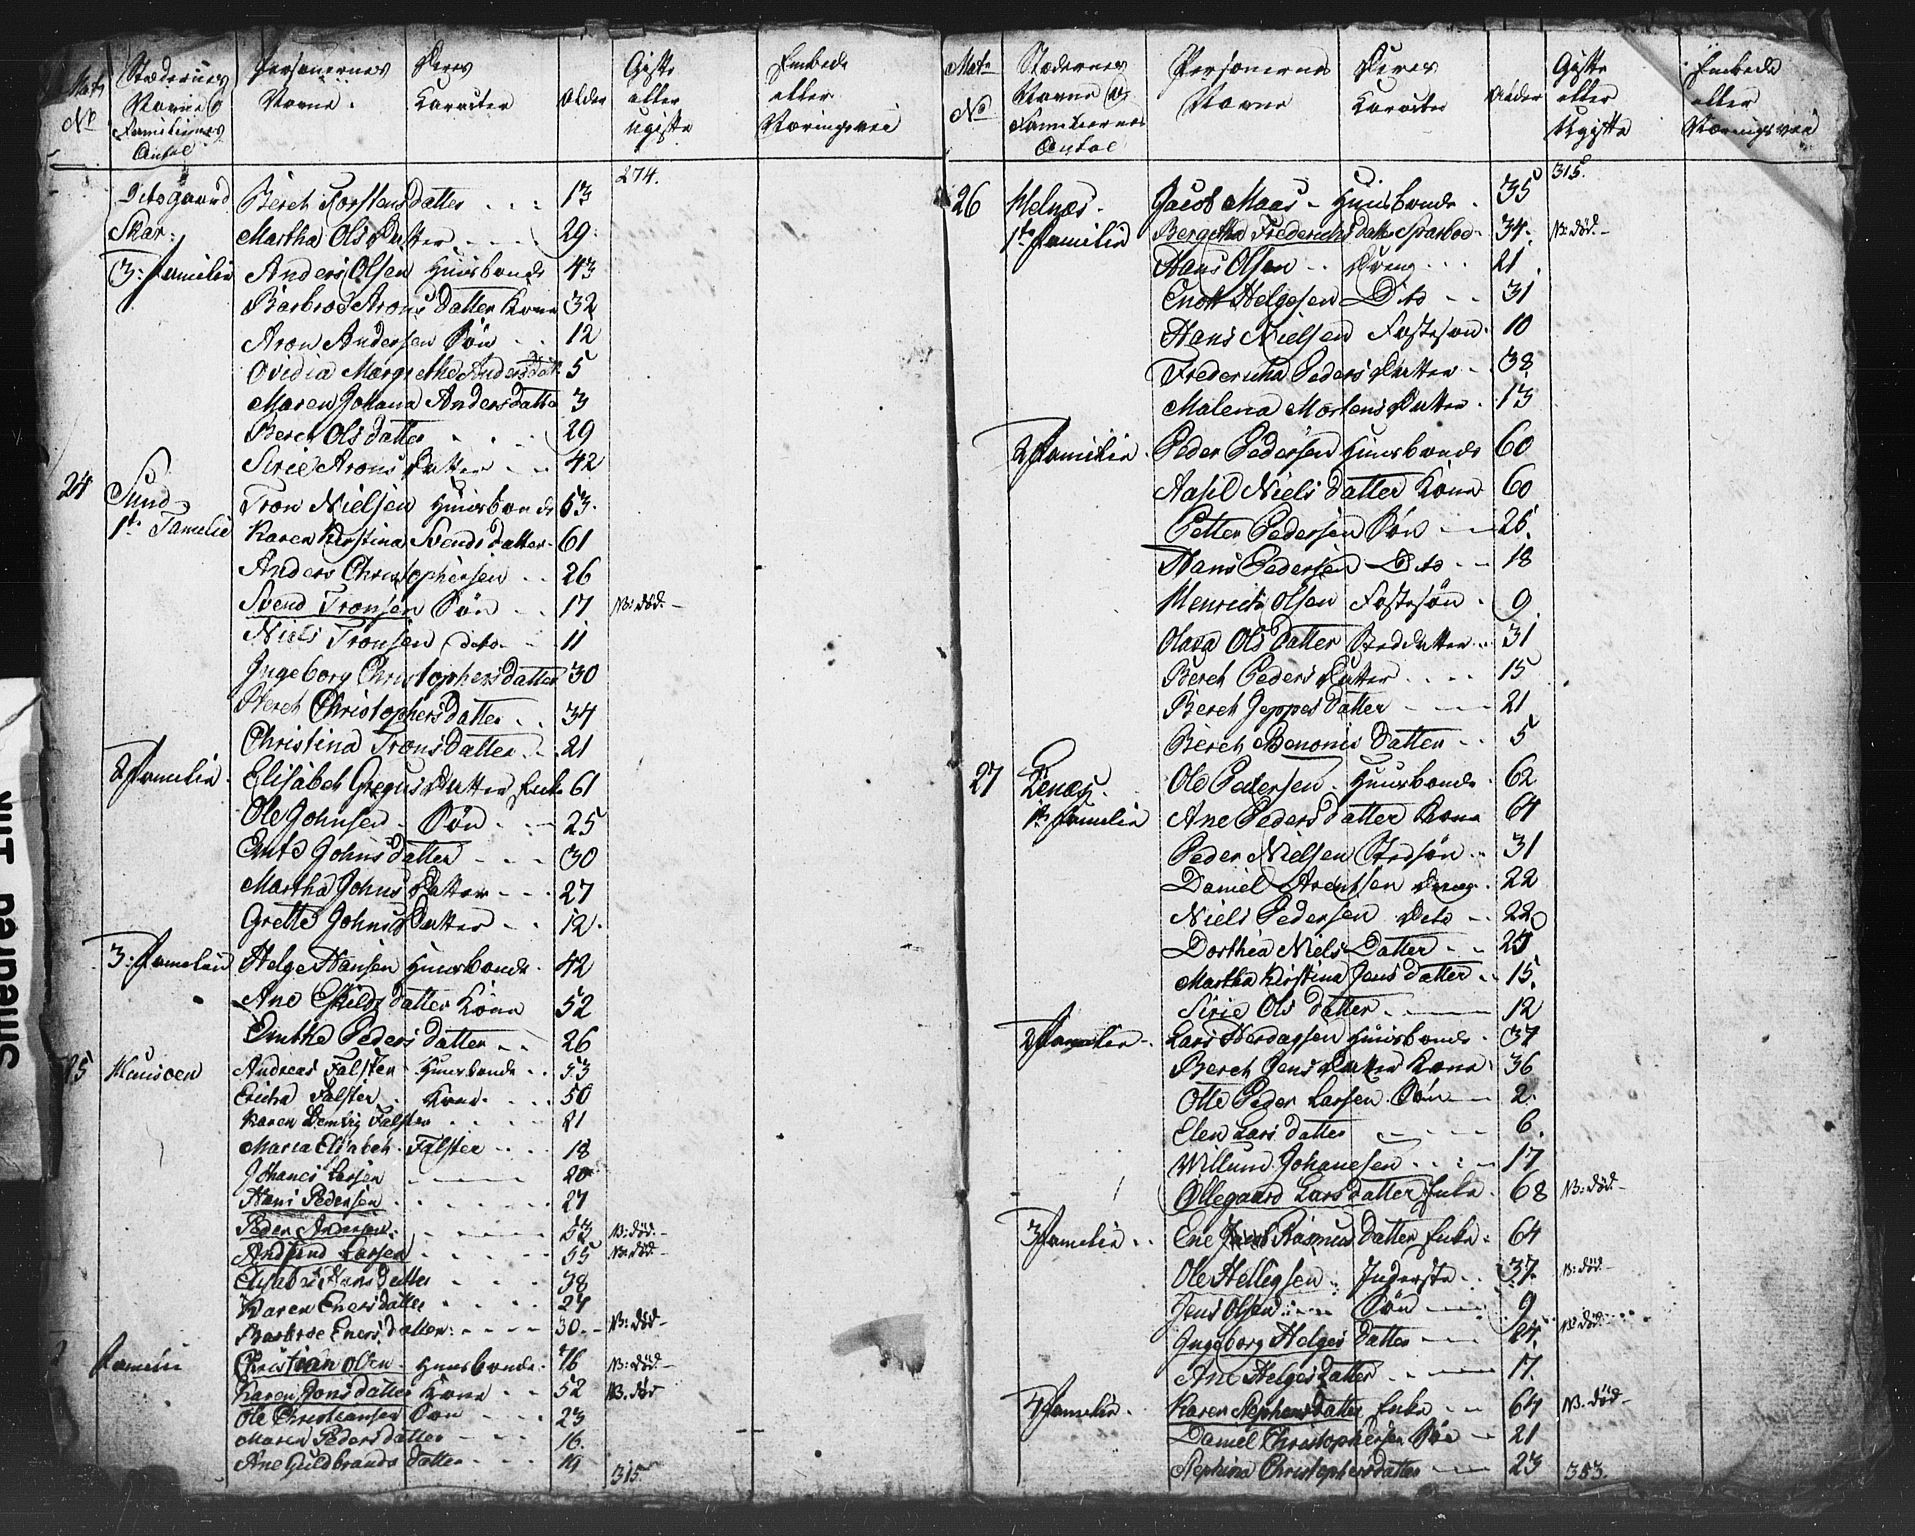 Mat. Stædernes Personernes Deres Gifte Embede
No Navne og Navne. Karacter Alder eller eller
Familiernes ugifte Næringsvei
Antal
274.
Ditogaard Beret Torstens datter 13
Skar. Martha Ols Datter 29.
3: Familie Anders Olsen Huusbonde 43
Barbroe Arons datter Kone 32
Aron Andersen Søn 12
Ovidia Margrethe Anders dat 5
Maren Johana Andersdatter 3
Beret Ols datter 29
Sirie Arons Datter 42
24 Sund Tron Nielsen Huusbonde 63.
1te Familie Karen Kirstina Svends datter 61
Anders Christophersen 26
Svend Tronsen Søn 17 NB: død.
Niels Tronsen dito 11
Ingeborg Christophersdatter 30
Beret Christophersdatter 34
Christina Trons datter 21
2 Familie Elisabet Gregus Datter Enke 61
Ole Johnsen Søn 25
Johns datter 30
Martha Johns Datter 27
Grette Johns Datter 12.
3: Familie Helge Hansen Huusbonde 42
Ane Eskilds datter Kone 52
Peders datter 26
25 Andreas Falster Huusbonde 53
Falster Kone. 50
Karen Falster 21
Maria Elisabet Falster 18
Johanes Larsen 20
Hans Pedersen 27
Peder Andersen 52 NB: død.
Larsen 55 NB: død
Elisabet Hans datter 38
Karen Eners datter 27
Barbroe Eners datter 30 NB: død
Familie Christian Olsen Huusbonde 76 NB: død.
Karen Jons datter Kone 52 NB. død
Ole Christiansen Søn 23
Maren Peders datter 16.
Ane Guldbrands datter 19
315.
Mat. Stædernes Personernes Deres Gifte Embede
No Navne og Navne Karacter Alder eller eller
Familiernes Ugifte Næringsvei
Antal
315.
26 Helnes. Jacob Maas Huusbonde 35
1te Familie Bergitha Frederichs datter 34. NB: død.
Hans Olsen Dreng 21
Enott Helgesen Dito 31
Hans Nielsen Fostersøn 10
Fredericha Peders Datter 38
Malena Mortens Datter 13
2 Familie Peder Pedersen Huusbonde 60
Niels datter Kone 60
Petter Pedersen Søn 26.
Hans Pedersen Dito 18
Henrich Olsen Fostersøn 9
Olava Ols datter Steddatter 31
Beret Peders Datter 15
Beret Jeppes datter 21
Beret Benonis datter 5
27 Ole Pedersen Huusbonde 62
1te Familie Ane Peders datter Kone 64
Peder Nielsen Stedsøn 31
Daniel Arentsen Dreng 22
Niels Pedersen Dito 22
Dorthea Niels Datter
Martha Kirstina Jens datter 15.
Sirie Ols datter 12
2 Familie Lars Huusbonde 37
Beret Jens Datter Kone 36
Otte Peder Larsen Søn 2.
Elen Lars datter 6.
Willum Johanesen 17
Ollegaard Lars datter Enke 68 NB: død.
3 Familie Ene Rasmus datter Enke 64
Ole Hellegsen Inderste 37. NB: død.
Jens Olsen Søn 9
Ingeborg Helges datter 24. NB: død.
Ane Helges datter 17.
4 Familie Karen Stephens datter Enke 64 NB: død
Daniel Christophersen Søn 21
Stephina Christophers datter 23
353.